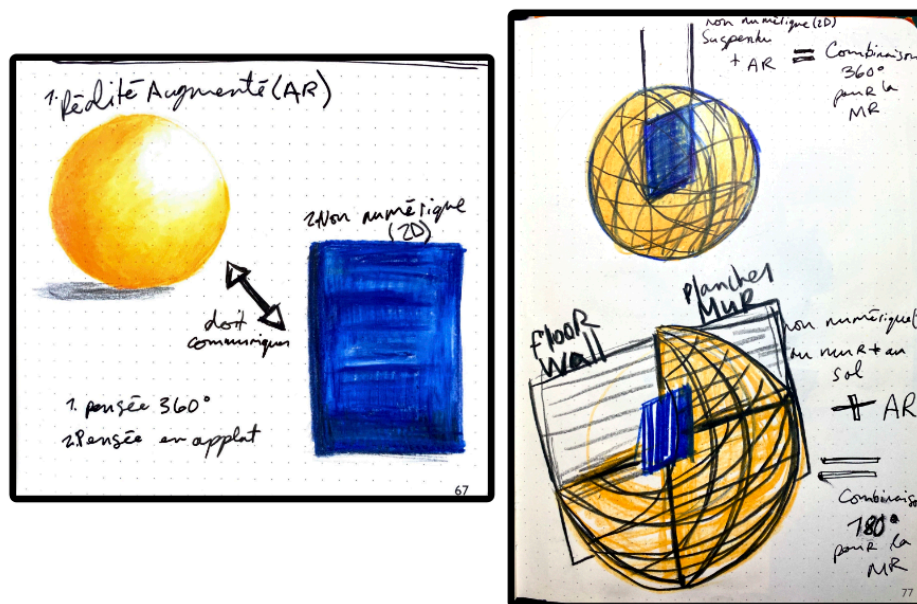 1. Réalité Augmenté (AR)
2. Non numérique
(2D)
doit
communiquer
1. pensée 360°
2. Pensée en applat
67
non numérique (2D)
Suspendu
+ AR = Combinaison
360°
pour la
MR
floor
wall
plancher
MUR
non numérique (
au mur + au
sol
+ AR
=
Combinaiso
180°
pour la
MR
77